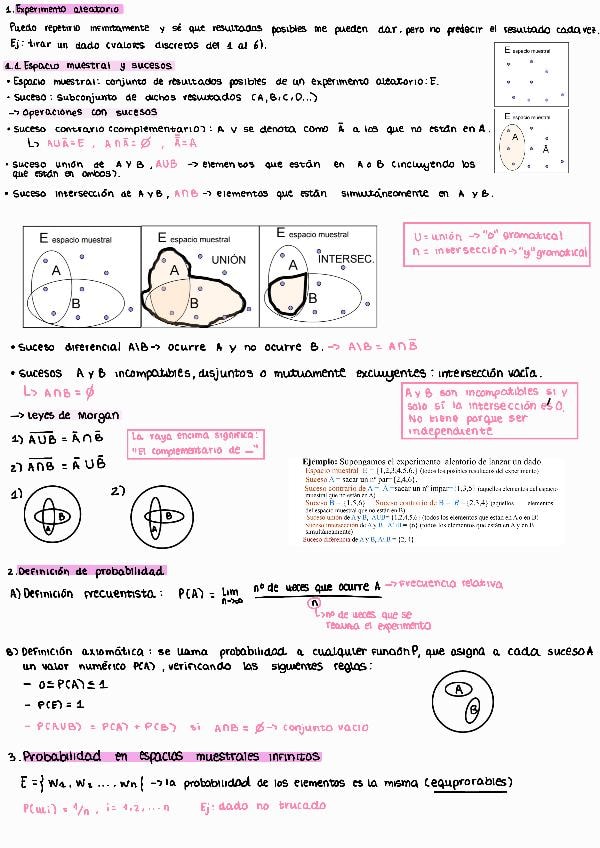 1. Experimento aleatorio
Puedo repetirlo infinitamente y sé que resultados posibles me pueden dar, pero no predecir el resultado cada vez.
Ej: tirar un dado (valores discretos del 1 al 6).
1.1 Espacio muestral y sucesos
• Espacio muestral: conjunto de resultados posibles de un experimento aleatorio: E.
· Suceso: Subconjunto de dichos resultados (A, B, C, D...)
E espacio muestral
→ Operaciones con sucesos
• Suceso contrario (complementario): A y se denota como Ā a los que no están en A.
↳ A∪Ā=E, A∩Ā=∅, Ā̄=A
E espacio muestral
A
Ā
• Suceso unión de A y B, A∪B → elementos que están en A o B (incluyendo los
que están en ambos).
• Suceso intersección de A y B, A∩B → elementos que están simultáneamente en A y B.
E espacio muestral
A
B
E espacio muestral
UNIÓN
A
B
E espacio muestral
INTERSEC.
A
B
U = unión → "o" gramatical
∩ = intersección → "y" gramatical
• Suceso diferencial A\B → ocurre A y no ocurre B. → A\B = A∩B̄
• Sucesos A y B incompatibles, disjuntos o mutuamente excluyentes: intersección vacía.
↳ A∩B = ∅
A y B son incompatibles si y
solo si la intersección es 0.
No tiene porque ser
independiente
→ Leyes de Morgan
1) A̅∪̅B̅ = Ā∩B̄
2) A̅∩̅B̅ = Ā∪B̄
La raya encima significa:
"El complementario de _"
1)
A
B
2)
A
B
Ejemplo: Supongamos el experimento aleatorio de lanzar un dado
Espacio muestral E = {1,2,3,4,5,6,} (todos los posibles resultados del experimento)
Suceso A = sacar un nº par={2,4,6}.
Suceso contrario de A = Ā =sacar un nº impar={1,3,5} (aquellos elementos del espacio
muestral que no están en A)
Suceso B = {1,5,6} Suceso contrario de B = B̄ ={2,3,4} (aquellos elementos
del espacio muestral que no están en B)
Suceso unión de A y B, A∪B= {1,2,4,5,6} (todos los elementos que están en A o en B)
Suceso intersección de A y B, A∩B= {6} (todos los elementos que están en A y en B
simultáneamente)
Suceso diferencia de A y B, A\B= {2, 4}
2. Definición de probabilidad
A) Definición frecuentista: P(A) = lim n→∞ nº de veces que ocurre A / n → Frecuencia relativa
↳ nº de veces que se
realiza el experimento
B) Definición axiomática: se llama probabilidad a cualquier función P, que asigna a cada suceso A
un valor numérico P(A), verificando las siguientes reglas:
- 0≤P(A)≤1
- P(E) = 1
- P(A∪B) = P(A) + P(B) si A∩B = ∅ → conjunto vacio
A
B
3. Probabilidad en espacios muestrales infinitos
E = {w1, w2 ..., wn{ → la probabilidad de los elementos es la misma (equprorables)
P(wi) = 1/n, i = 1,2, ... n Ej: dado no trucado